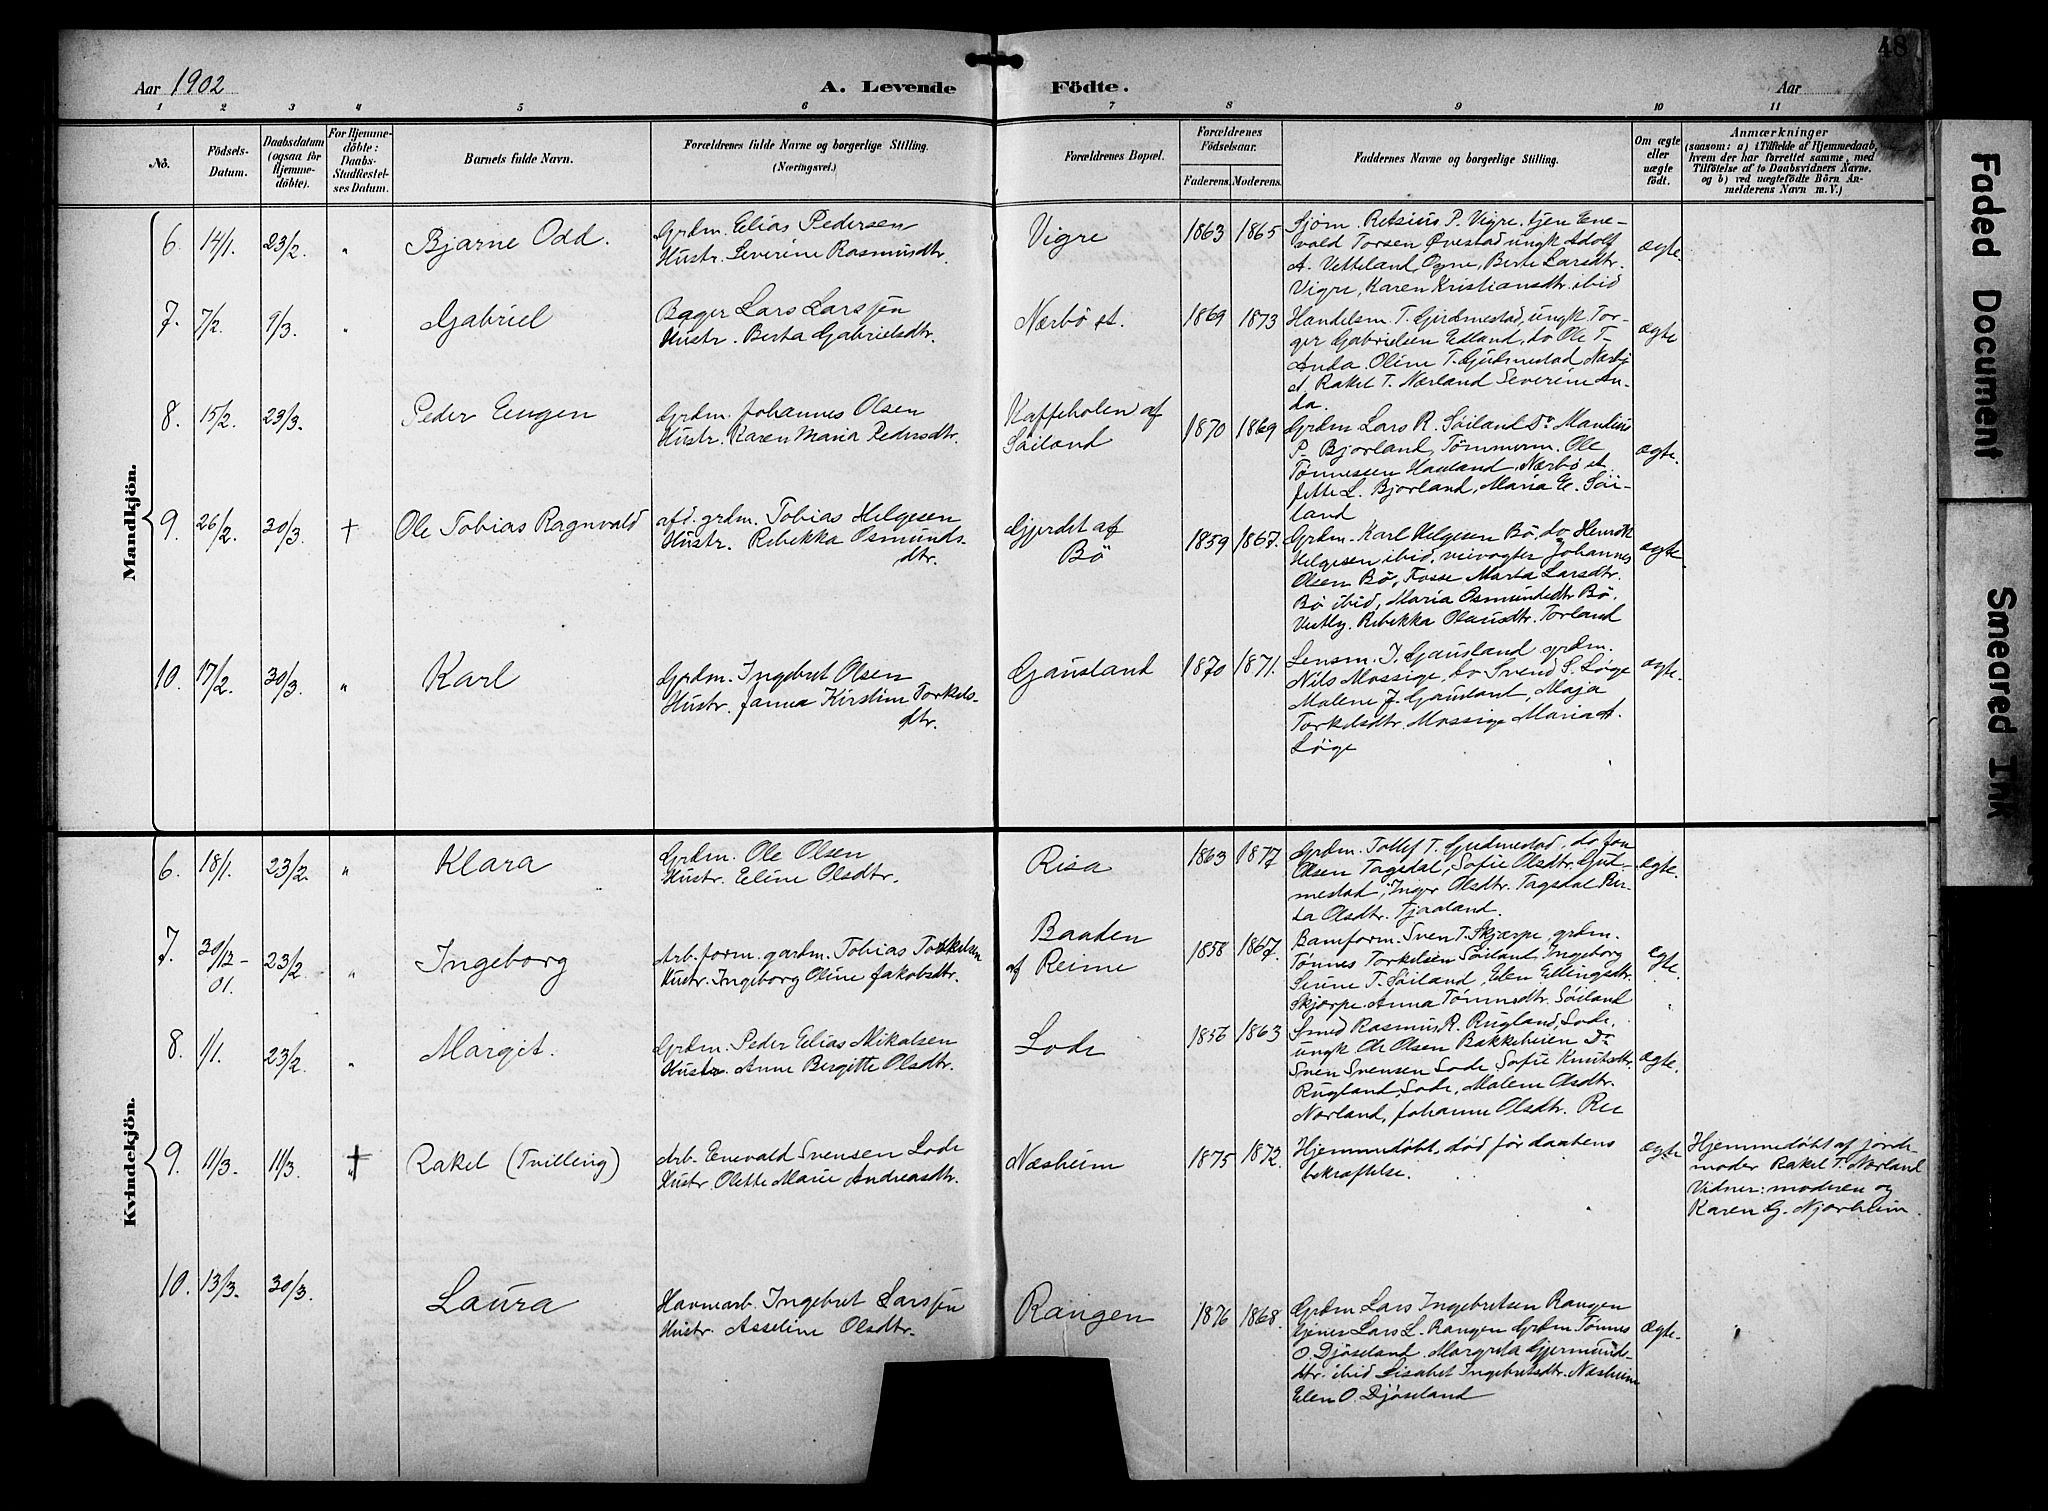 48
Aar 1902
A. Levende Födte.
Aar
1 2 3 4 5 6 7 8 9 10 11
No.
Födsels-
Datum.
Daabsdatum
(ogsaa for
Hjemme-
döbte).
For Hjemme-
döbte:
Daabs-
Stadfæstel-
ses Datum.
Barnets fulde Navn.
Forældrenes fulde Navne og borgerlige Stilling.
(Næringsvei.)
Forældrenes Bopæl.
Forældrenes
Födselsaar.
Faderens. Moderens.
Faddernes Navne og borgerlige Stilling.
Om ægte
eller
uægte
födt.
Anmærkninger
(saasom: a) i Tilfælde af Hjemmedaab,
hvem der har forrettet samme, med
Tilföielse af to Daabsvidners Navne,
og b) ved uægtefödte Börn An-
melderens Navn m. V.)
Mandkjön.
6. 14/1. 23/2. "
Bjarne Odd.
Grdm. Elias Pedersen
Hustr. Severine Rasmusdtr.
Vigre
1863 1865
Sjöm. Retsius P. Vigre, tjen Ene-
vald Torsen Øvestad ungk Adolf
A. Vetteland Ogne, Berte Larsdtr.
Vigre, Karen Kristiansdtr. ibid
ægte.
7. 7/2. 9/3. "
Gabriel
Bager Lars Larsen
Hustr. Berta Gabrielsdtr.
Nærbö st.
1869 1873
Handelsm. T. Gjudmestad, ungk Tor-
ger Gabrielsen Edland, do Ole T.
Anda. Oline T. Gjudmestad Nærbö
st, Rakel T. Nærland Severine An-
da.
ægte
8. 15/2. 23/3.
Peder Eugen
Grdm. Johannes Olsen
Hustr. Karen Maria Pedersdtr.
Kaffeholen af
Söiland
1870 1869
Grdm Lars R. Söiland Do Mandius
P. Bjorland, Tömmerm. Ole
Tönnessen Haaland, Nærbö st.
Jette L. Bjorland, Maria E. Söi-
land
ægte.
9. 26/2. 30/3. †
Ole Tobias Ragnvald
afd. grdm. Tobias Helgesen
Hustr. Rebekka Osmunds-
dtr.
Gjerdet af
Bö
1859 1867.
Grdm. Karl Helgesen Bö, do Henrik
Helgesen ibid, veivogter Johannes
Olsen Bö, Fosse Marta Larsdtr.
Bö ibid, Maria Osmundsdtr Bö.
Vestly. Rebekka Olausdtr. Torland
ægte.
10. 17/2. 30/3. "
Karl
Grdm. Ingebret Olsen
Hustr. Janna Kirstine Torkels-
dtr.
Gausland
1870 1871.
Lensm. J. Gausland grdm.
Nils Mossige, do Svend S. Löge
Malene J. Gausland, Maja
Torkelsdtr. Mossige Maria A.
Löge
ægte.
Kvindekjön.
6. 18/1. 23/2. "
Klara
Grdm. Ole Olsen
Hustr. Eline Olsdtr.
Risa
1863 1877
Grdm. Tollef T. Gudmestad, do Jon
Olsen Tagsdal, Sofie Olsdtr. Gud-
mestad, Inger Olsdtr. Tagsdal Ber-
ta Olsdtr. Tjaaland.
ægte.
7. 30/12- 23/2. "
01.
Ingeborg
Arb.form. gardm. Tobias Torkelsen
Hustr. Ingeborg Oline Jakobsdtr.
Baaden
af Reime
1858 1867.
Baneform. Sven T. Skjærpe, grdm.
Tönnes Torkelsen Söiland, Ingeborg
Serine T. Söiland, Elen Ellingsdtr.
Skjærpe. Anna Tönnesdtr. Söiland
ægte.
8. 1/1. 23/2. "
Margit.
Grdm. Peder Elias Mikalsen
Hustr. Anne Birgitte Olsdtr.
Lode
1856 1863
Smed Rasmus R. Rugland, Lode,
ungk. Ole Olsen Bakkeheien Do
Sven Svensen Lode Sofie Knutsdtr.
Rugland, Lode, Malene Olsdtr.
Nærland, Johanne Olsdtr. Ree
ægte.
9. 11/3. 11/3. †
Rakel (Tvilling)
Arb. Enevald Svensen Lode
Hustr. Olette Marie Andreasdtr.
Næsheim
1875 1872.
Hjemmedöbt, död för daabens
bekræftelse.
ægte
Hjemmedöbt af jorde-
moder Rakel T. Nærland
Vidner: moderen og
Karen G. Njærheim.
10. 13/3. 30/3.
Laura
Havnearb. Ingebret Larsen
Hustr. Asseline Olsdtr.
Rangen
1876 1868.
Grdm Lars Ingebretsen Rangen
tjener Lars L. Rangen Grdm Tönnes
O. Djöseland. Margreta Gjermunds-
dtr. ibid Lisabet Ingebretsdtr. Næsheim
Elen O. Djöseland
ægte.
Faded Document
Smeared Ink